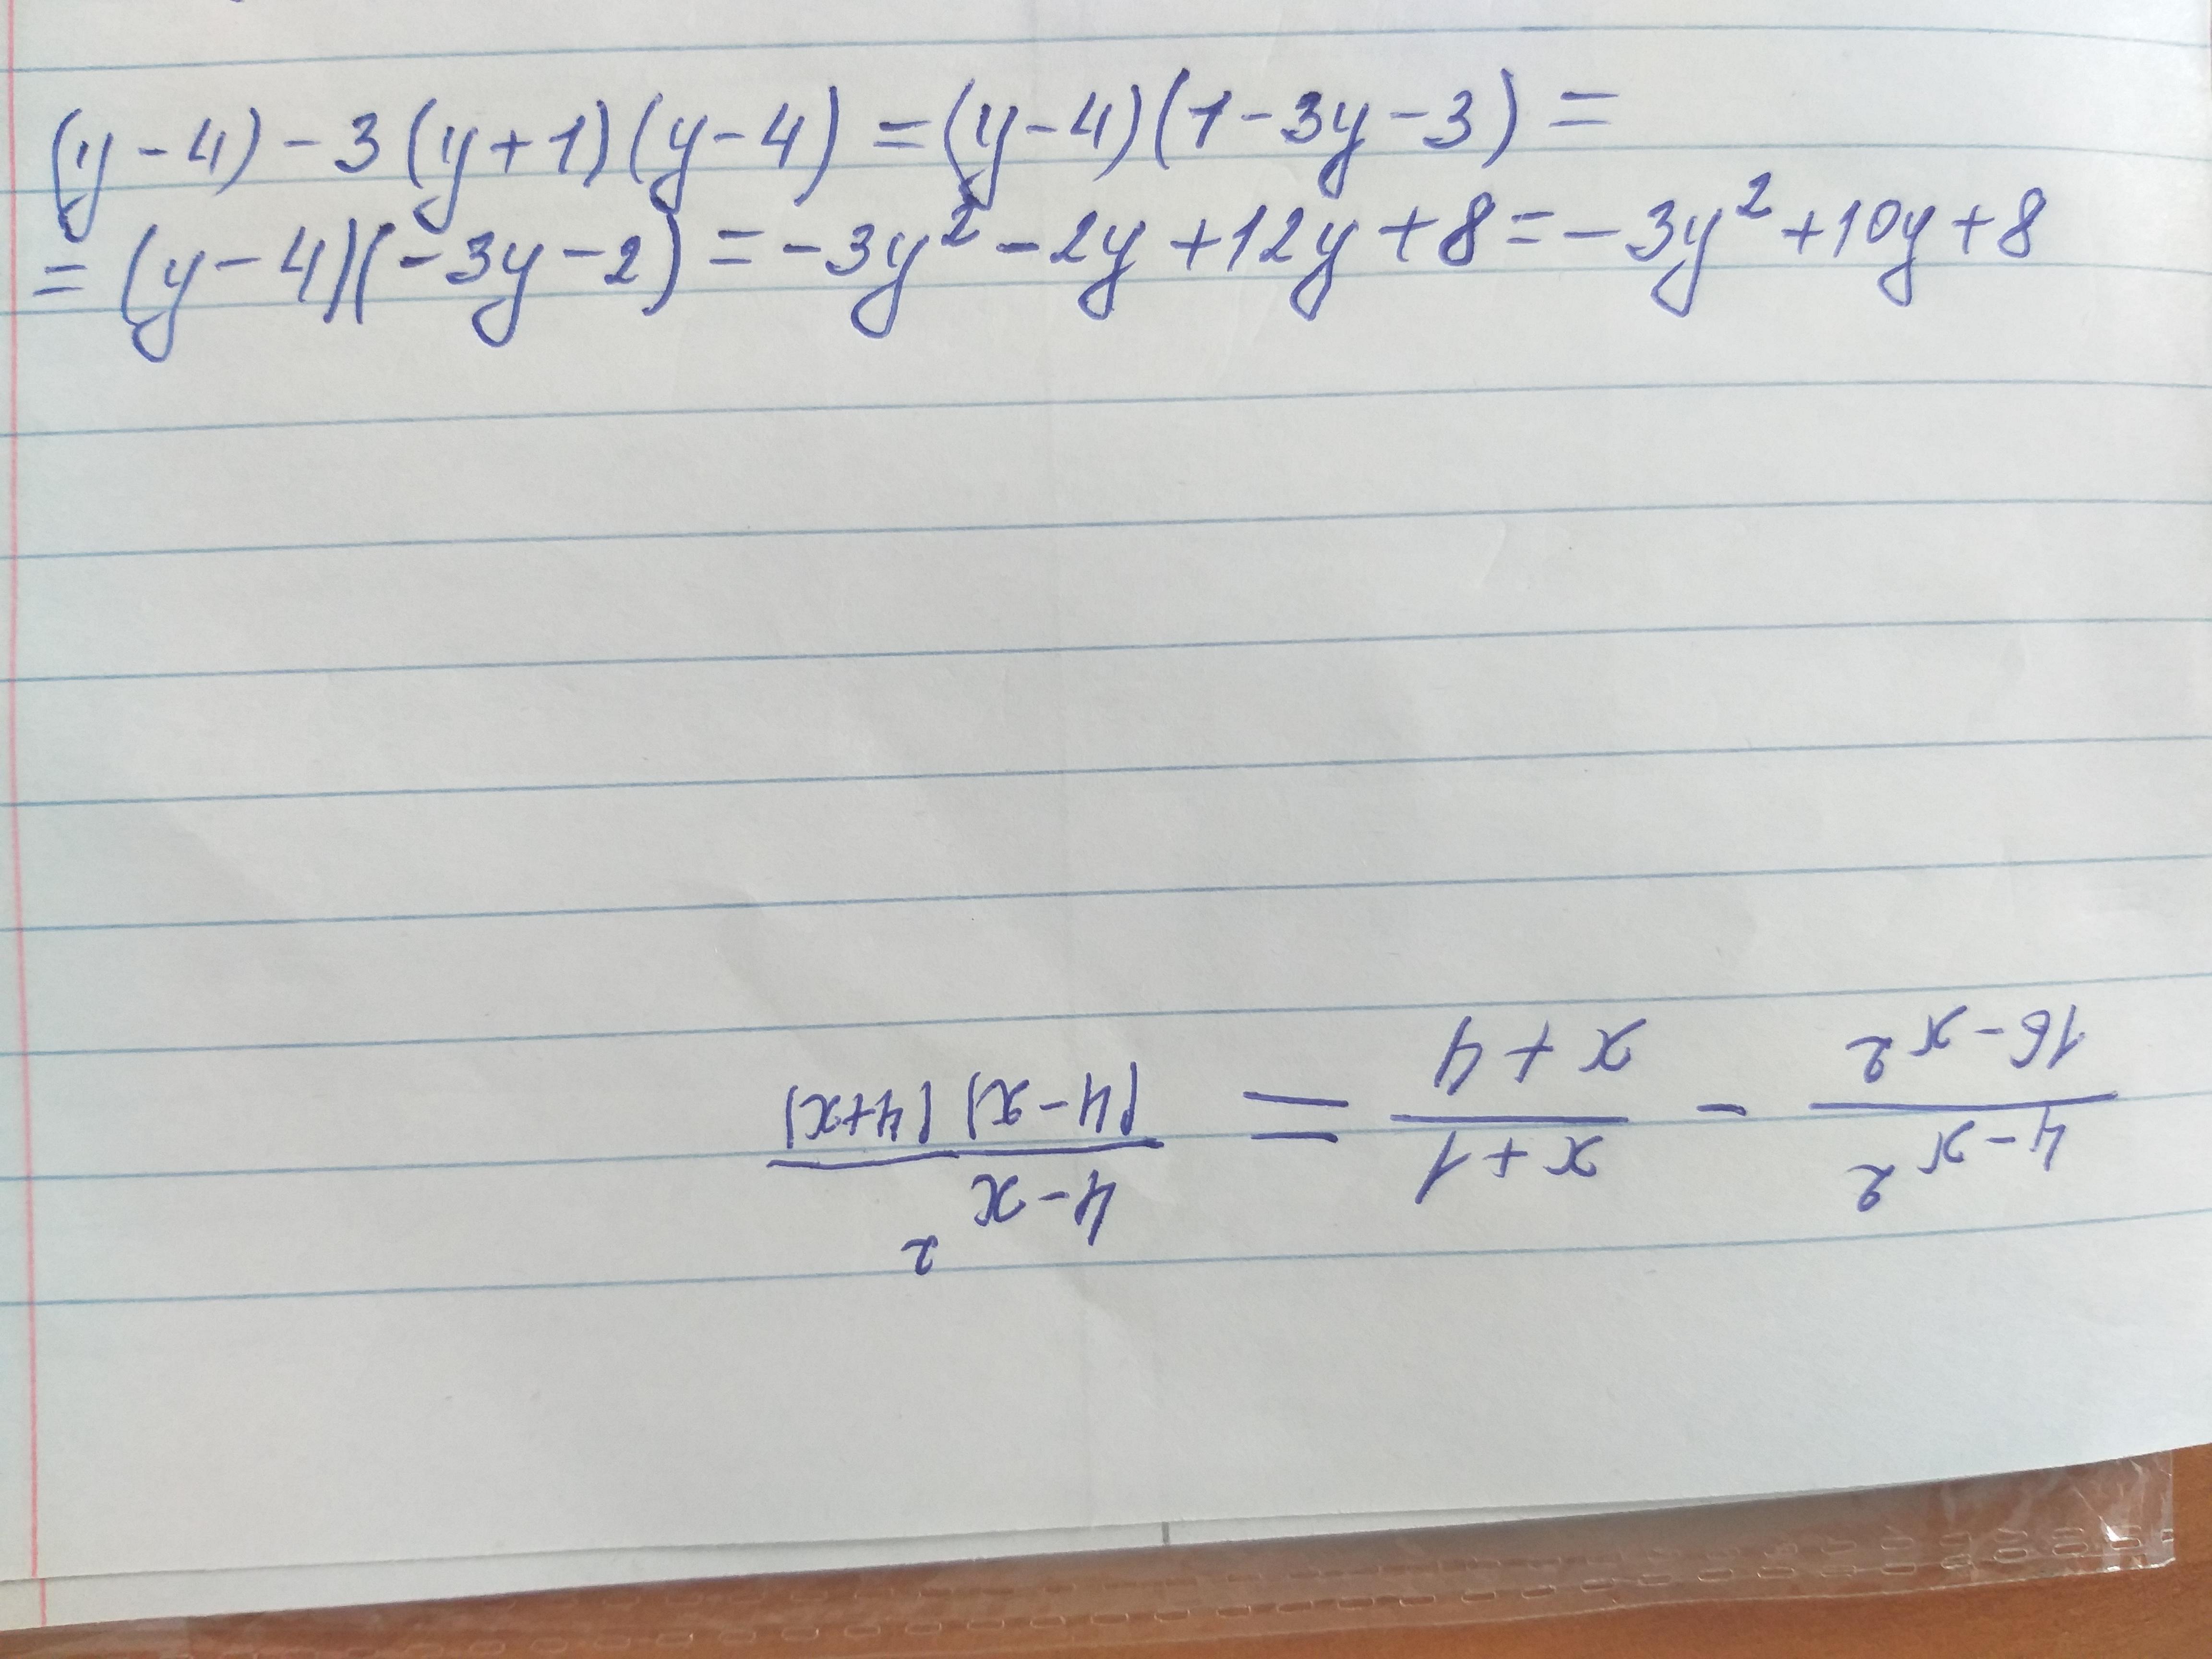 (y-4)-3(y+1)(y-4)=(y-4)(1-3y-3)=
=(y-4)(-3y-2)=-3y²-2y+12y+8=-3y²+10y+8
4-x²/16-x² - x+1/x+4 = 4-x ²/(4-x)(4+x)